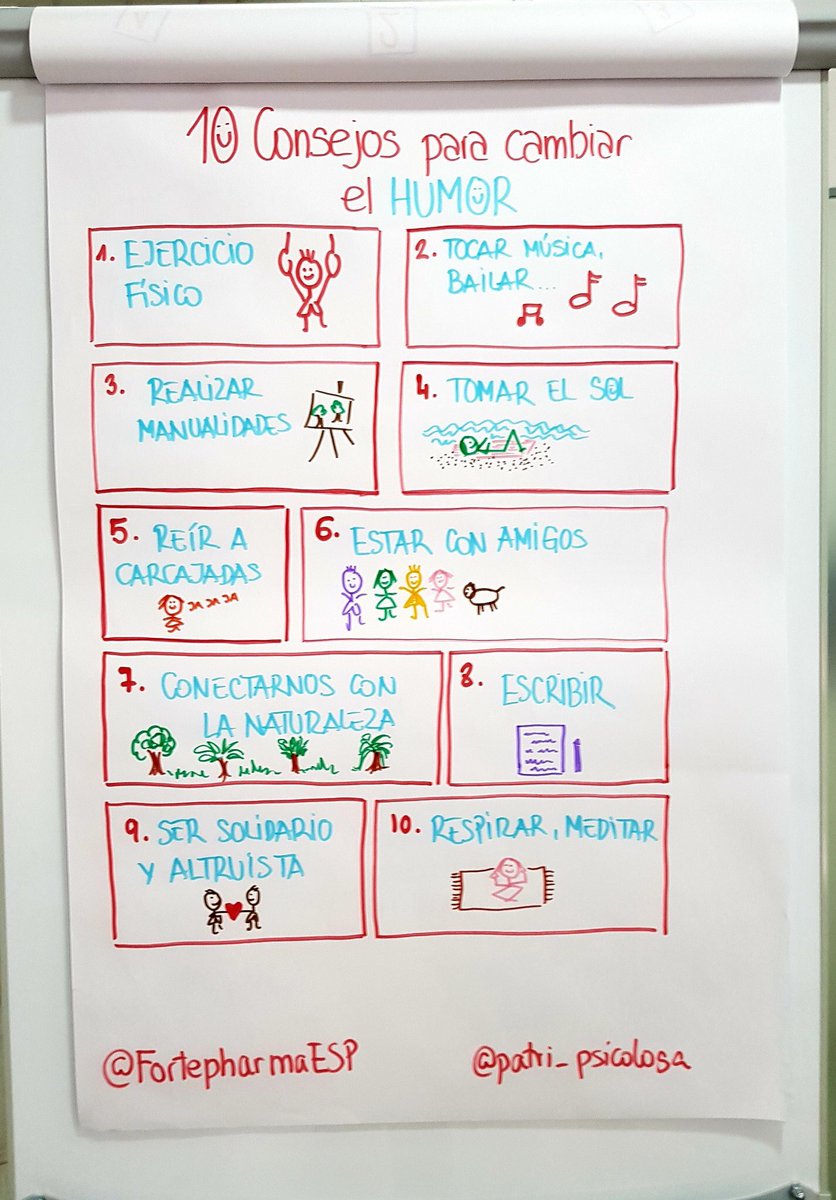 10 Consejos para cambiar
el HUMOR
1. EJERCICIO
FÍSICO
2. TOCAR MÚSICA,
BAILAR...
3. REALIZAR
MANUALIDADES
4. TOMAR EL SOL
5. REÍR A
CARCAJADAS
JA JA JA
6. ESTAR CON AMIGOS
7. CONECTARNOS CON
LA NATURALEZA
8. ESCRIBIR
9. SER SOLIDARIO
Y ALTRUÍSTA
10. RESPIRAR, MEDITAR
@FortepharmaESP
@patri_psicologa